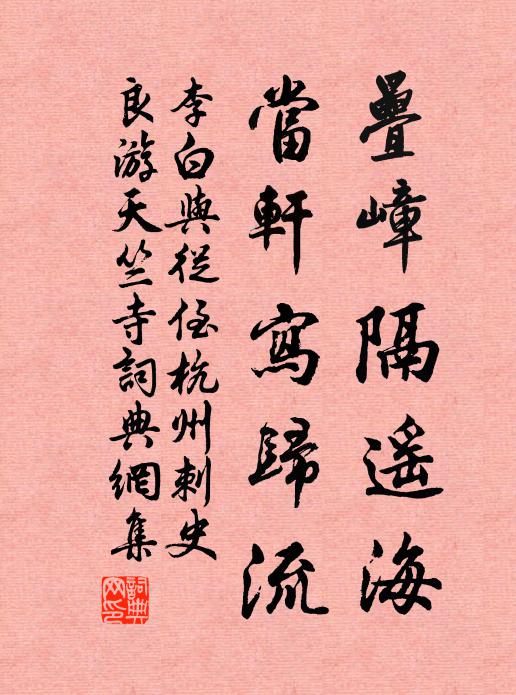 疊嶂隔遥海
當軒寫歸流
李白與從侄杭州刺史
良游天竺寺詞典網集
詞典
网印